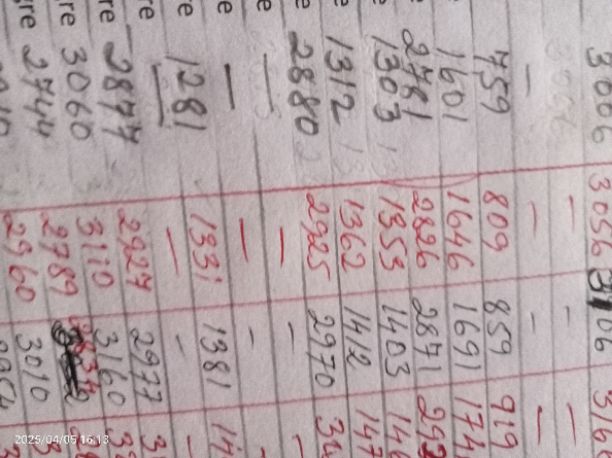 3006 3056 3106
— — — —
759 809 859 919
1601 1646 1691 174
2781 2826 2871 292
1303 1353 1403 14
1312 1362 1412 147
2880 2925 2970
e — — - -
e — — -
re 1281 1331 1381 14
— — -
re 2877 2927 2977 3
re 3060 3110 3160 3
re 2744 2789 2834
2960 3010
2025/04/05 16:13